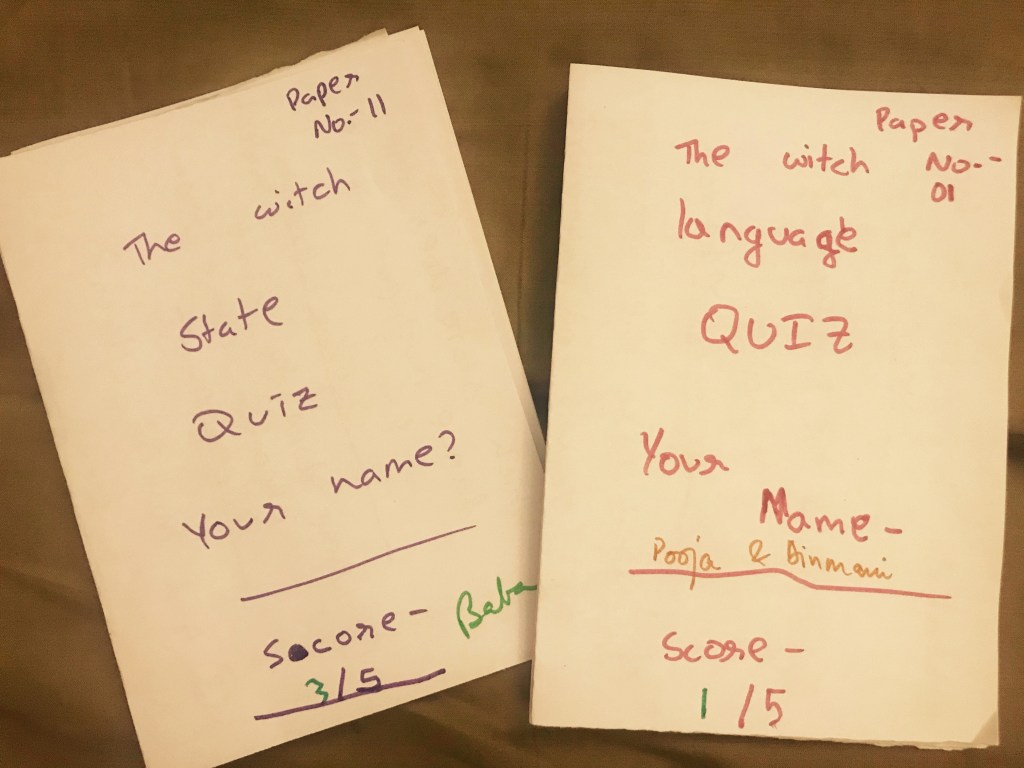 Paper
No:- 11
The witch
State
Quiz
Your name?
Socore - Baba
3/5
Paper
No.--
01
The witch
language
QUIZ
Your
Name-
Pooja & Binmani
Score -
1/5